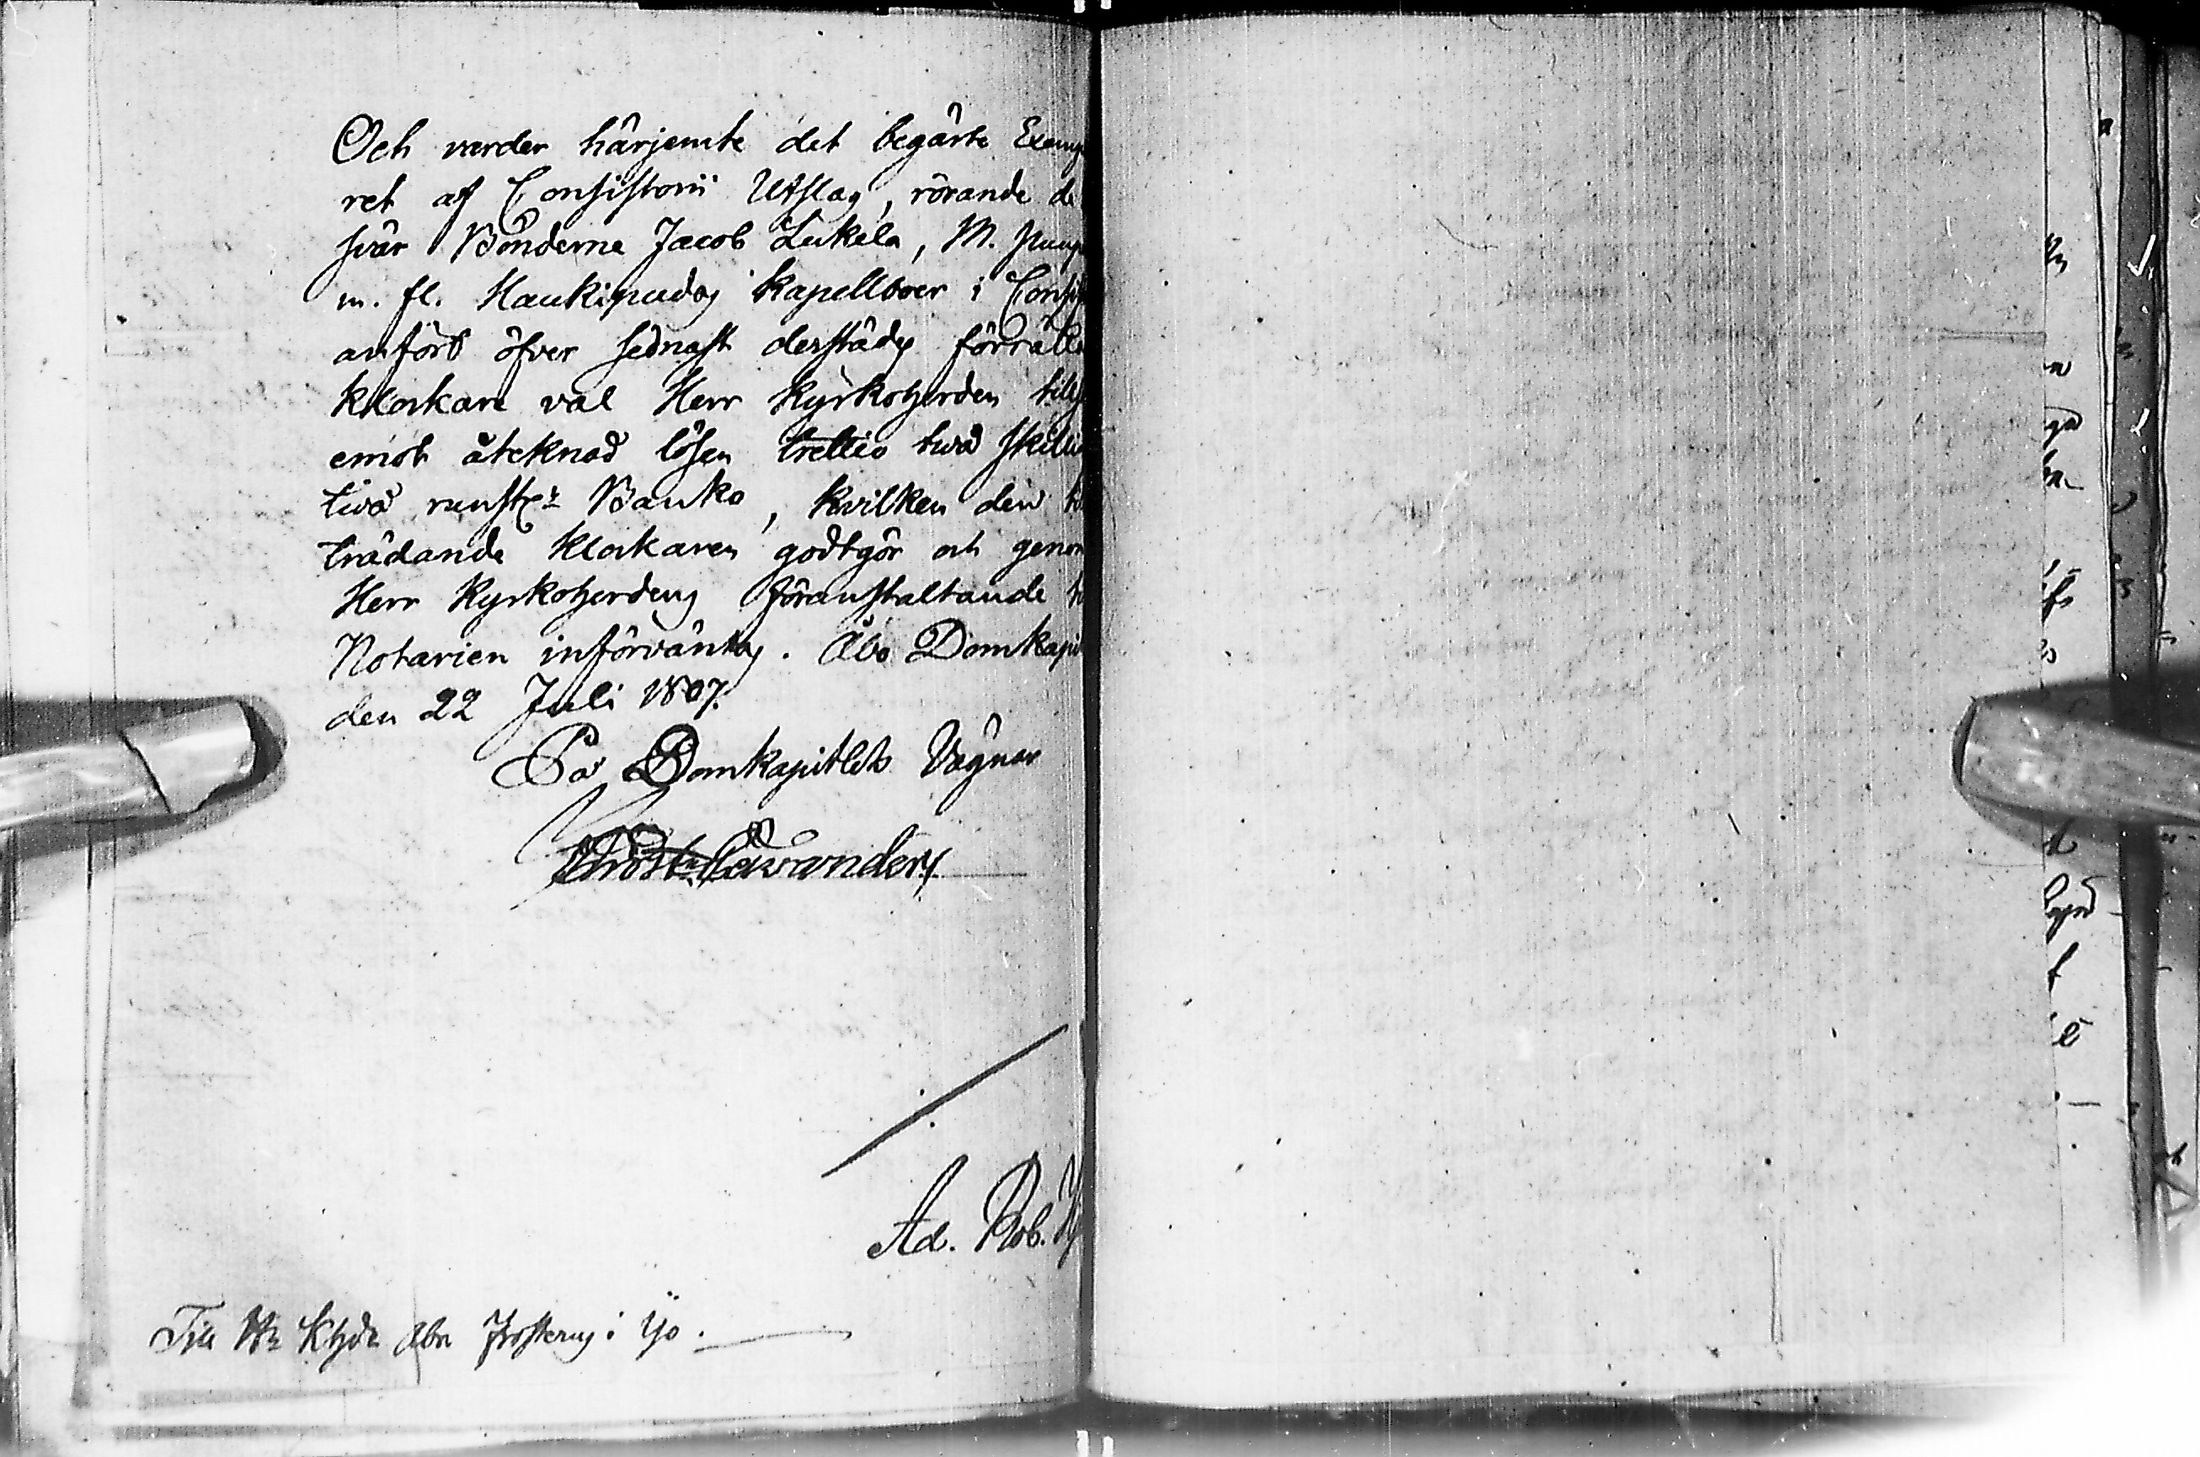 Och varder härjemte det begärte Exemp
ret af Consistorii Utslag, rörande de
svär Bönderne Jacob Lukela, M.
m. fl. Haukipudas kapellboer i Consi
anfört öfver sednast derstädes förrätta
klockare val Herr Kyrkoherden tills
emot åteknad lösen trettio två skilli
två runstr Banko, hvilken den til
trädande klockaren godtgör och genom
Herr Kyrkoherdens föranstaltande
Notarien införväntas. Åbo Domkapi
den 22 Juli 1807.
På Domkapitlets Vägnar
Christ. Cavander
Ad. Rob.
Till Hr Khdn Abr Frosterus i Ijo.